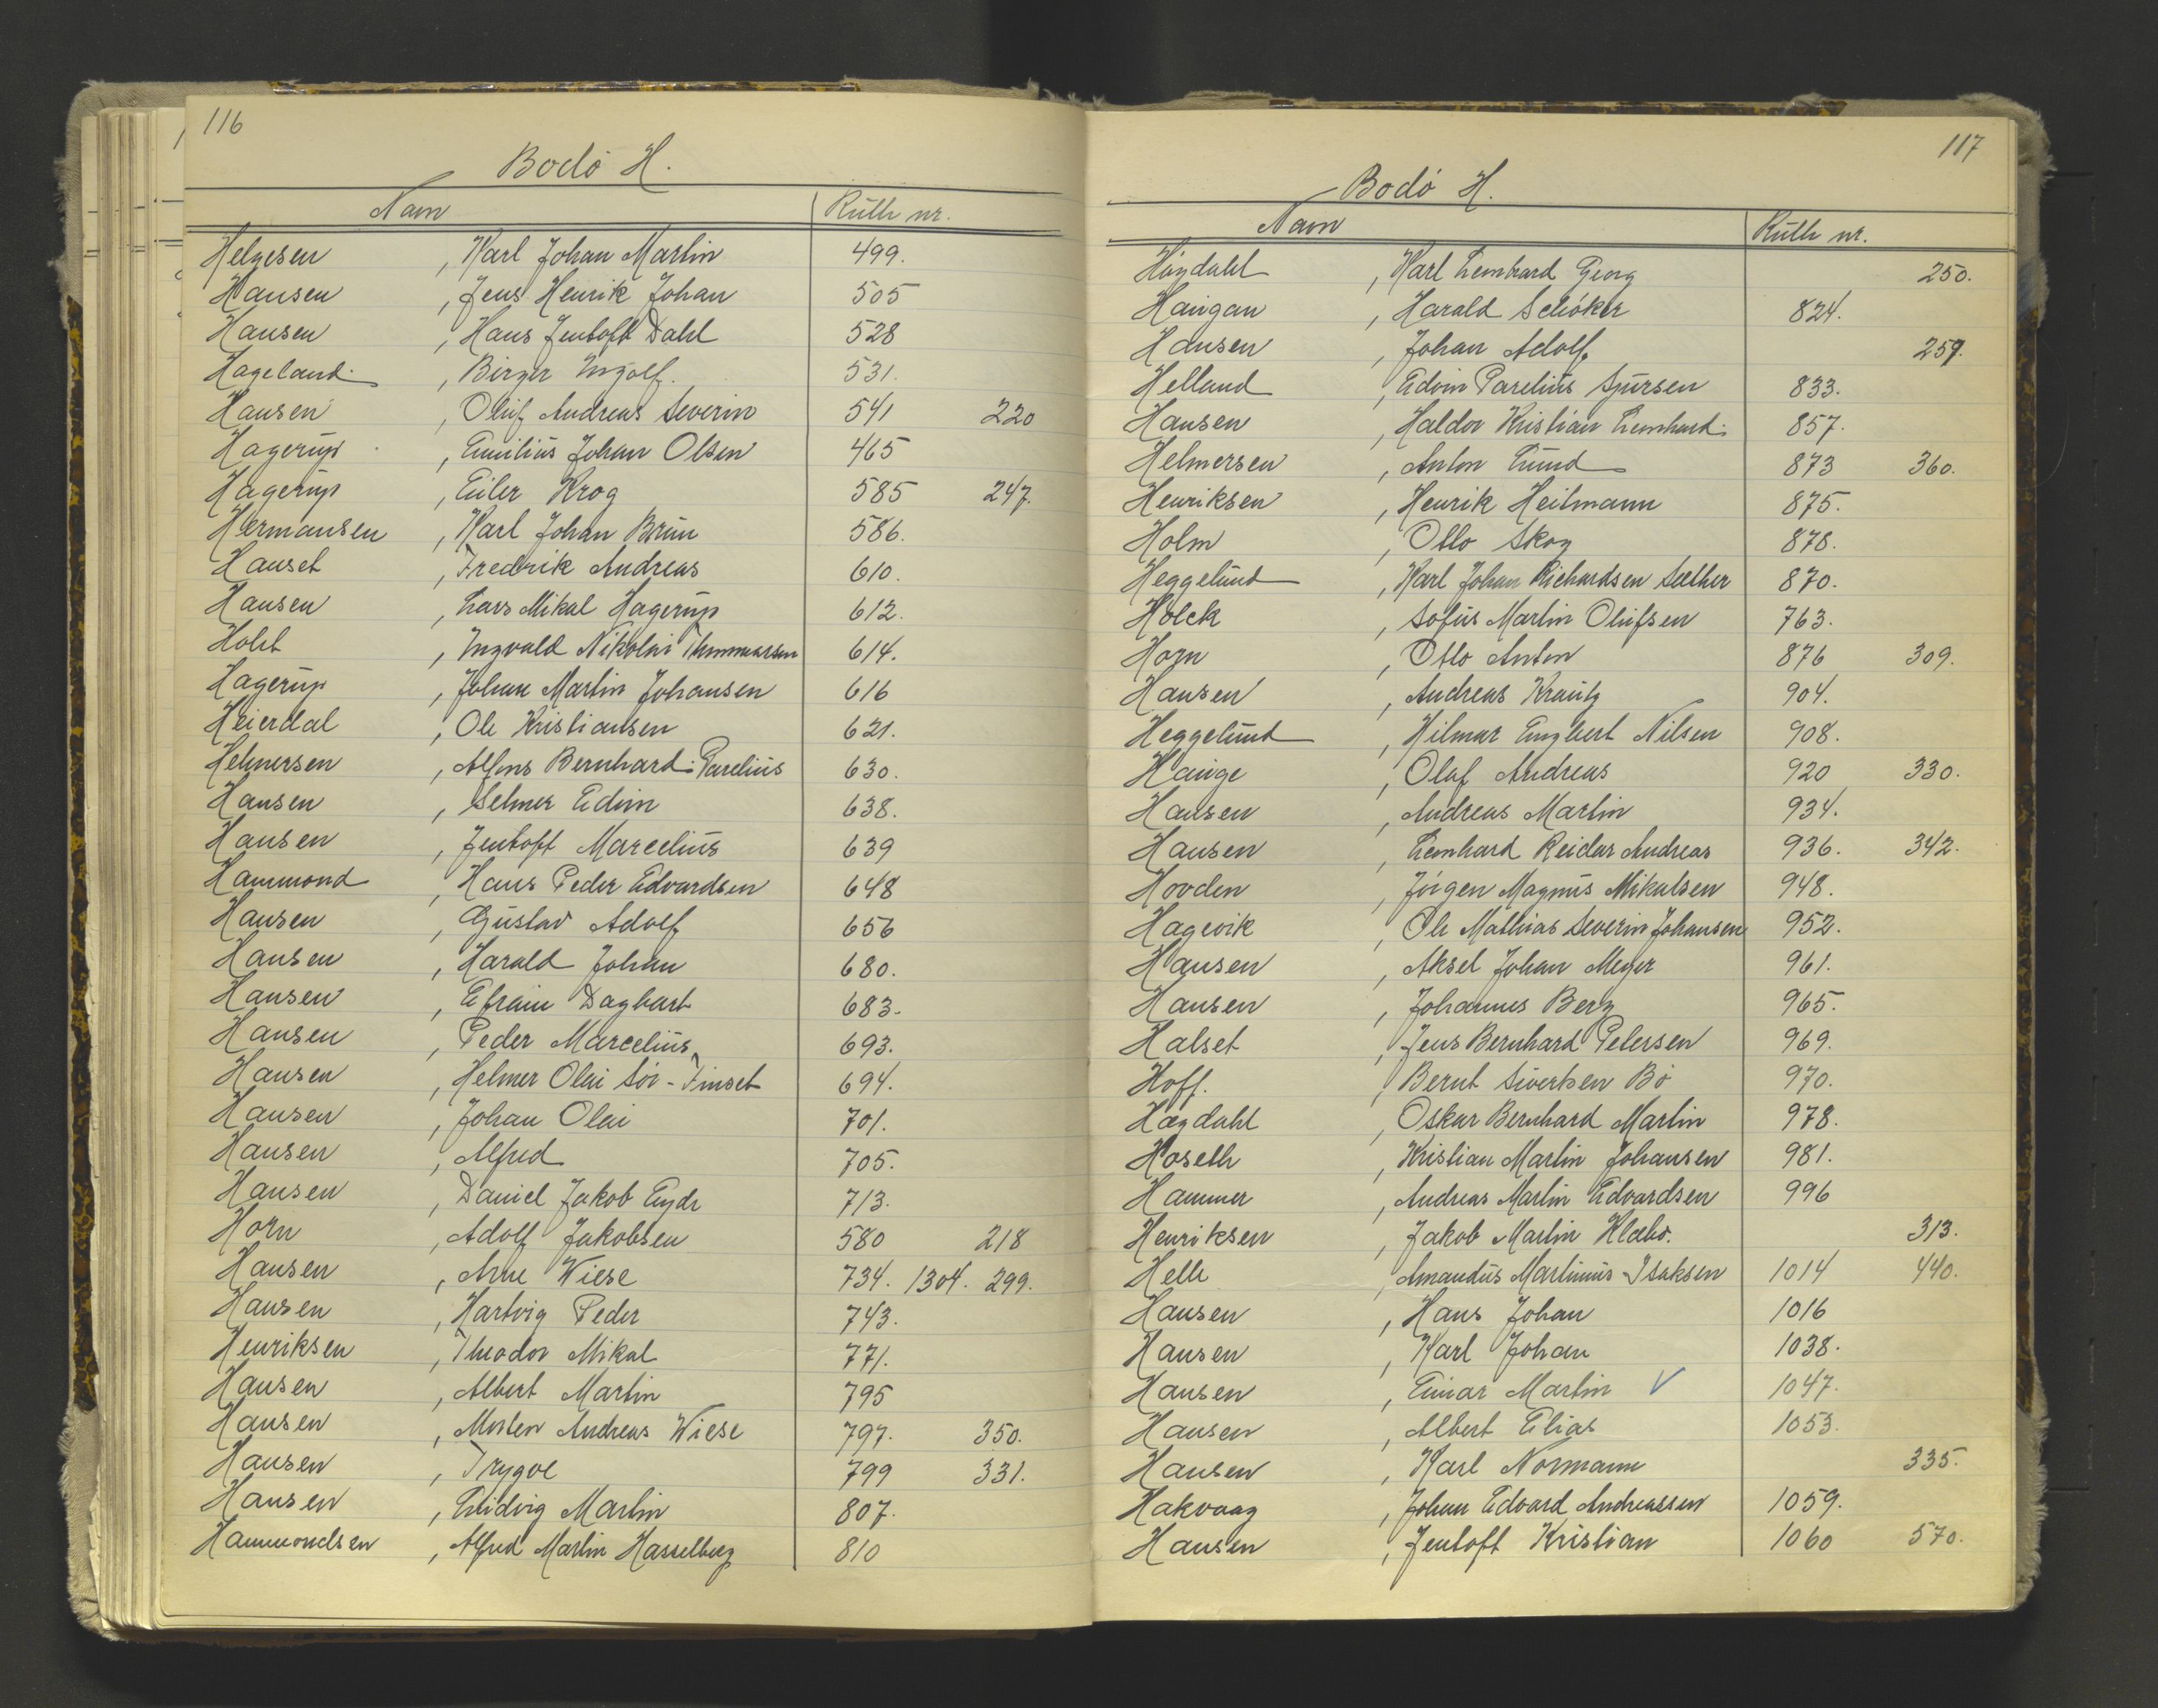 116
Bodø H.
Navn Rulle nr.
Helgesen , Karl Johan Martin 499.
Hansen , Jens Henrik Johan 505
Hansen , Hans Jentoft Dahl 528
Hageland , Birger Ingolf. 531.
Hansen , Oluf Andreas Severin 541 220
Hagerup , Emilius Johan Olsen 465
Hagerup , Eiler Krog 585 247.
Hermansen , Karl Johan Brun 586.
Hauset , Fredrik Andreas 610.
Hansen , Lars Mikal Hagerup 612.
Holst , Ingvald Nikolai 614.
Hagerup , Johan Martin Johansen 616
Heierdal , Ole Kristiansen 621.
Helmersen , Alfons Bernhard Parelius 630.
Hansen , Selmer Edvin 638.
Hansen , Jentoft Marcelius 639
Hammond , Hans Peder Edvardsen 648
Hansen , Gustav Adolf 656
Hansen , Harald Johan 680.
Hansen , Efraim Dagbart 683.
Hansen , Peder Marcelius 693.
Hansen , Helmer Olai Sör-Finset 694.
Hansen , Johan Olai 701.
Hansen , Alfred 705.
Hansen , Daniel Jakob Eyde 713.
Horn , Adolf Jakobsen 580 218
Hansen , Arne Wiese 734. 1304. 299.
Hansen , Hartvig Peder 743.
Henriksen , Theodor Mikal 771.
Hansen , Albert Martin 795
Hansen , Morten Andreas Wiese 797. 350.
Hansen , Trygve 799 331.
Hansen , Ludvig Martin 807.
Hammondsen , Alfred Martin Hasselberg 810
117
Bodø H.
Navn Rulle nr.
Høgdahl , Karl Lernhard Georg 250.
Haugan , Harald Schøker 824.
Hansen , Johan Adolf 259.
Helland , Edvin Parelius Sjursen 833.
Hansen , Haldor Kristian Lernhard. 857.
Helmersen , Anton Lund 873 360.
Henriksen , Henrik Heitmann 875.
Holm , Otto Skog 878.
Heggelund , Karl Johan Richardsen Sæther 870.
Holck , Sofus Martin Olufsen 763.
Horn , Otto Anton 876 309.
Hansen , Andreas Krantz 904.
Heggelund , Hilmar Engbert Nilsen 908.
Hauge , Olaf Andreas 920 330.
Hansen , Andreas Martin 934.
Hansen , Lernhard Reidar Andreas 936. 342.
Hovden , Jørgen Magnus Mikalsen 948.
Hagevik , Ole Mathias Severin Johansen 952.
Hansen , Aksel Johan Meyer 961.
Hansen , Johannes Berg 965.
Halset , Jens Bernhard Petersen 969.
Hoff. , Bernt Sivertsen Bö 970.
Hagdahl , Oskar Bernhard Martin 978.
Hoseth , Kristian Martin Johansen 981.
Hammer , Andreas Martin Edvardsen 996
Henriksen , Jakob Martin Klæbo. 313.
Helle , Amandus Martinus Isaksen 1014 440.
Hansen , Hans Johan 1016
Hansen , Karl Johan 1038.
Hansen , Einar Martin ✓ 1047.
Hansen , Albert Elias 1053.
Hansen , Karl Normann 335.
Hakvaag , Johan Edvard Andreassen 1059.
Hansen , Jentoft Kristian 1060 570.